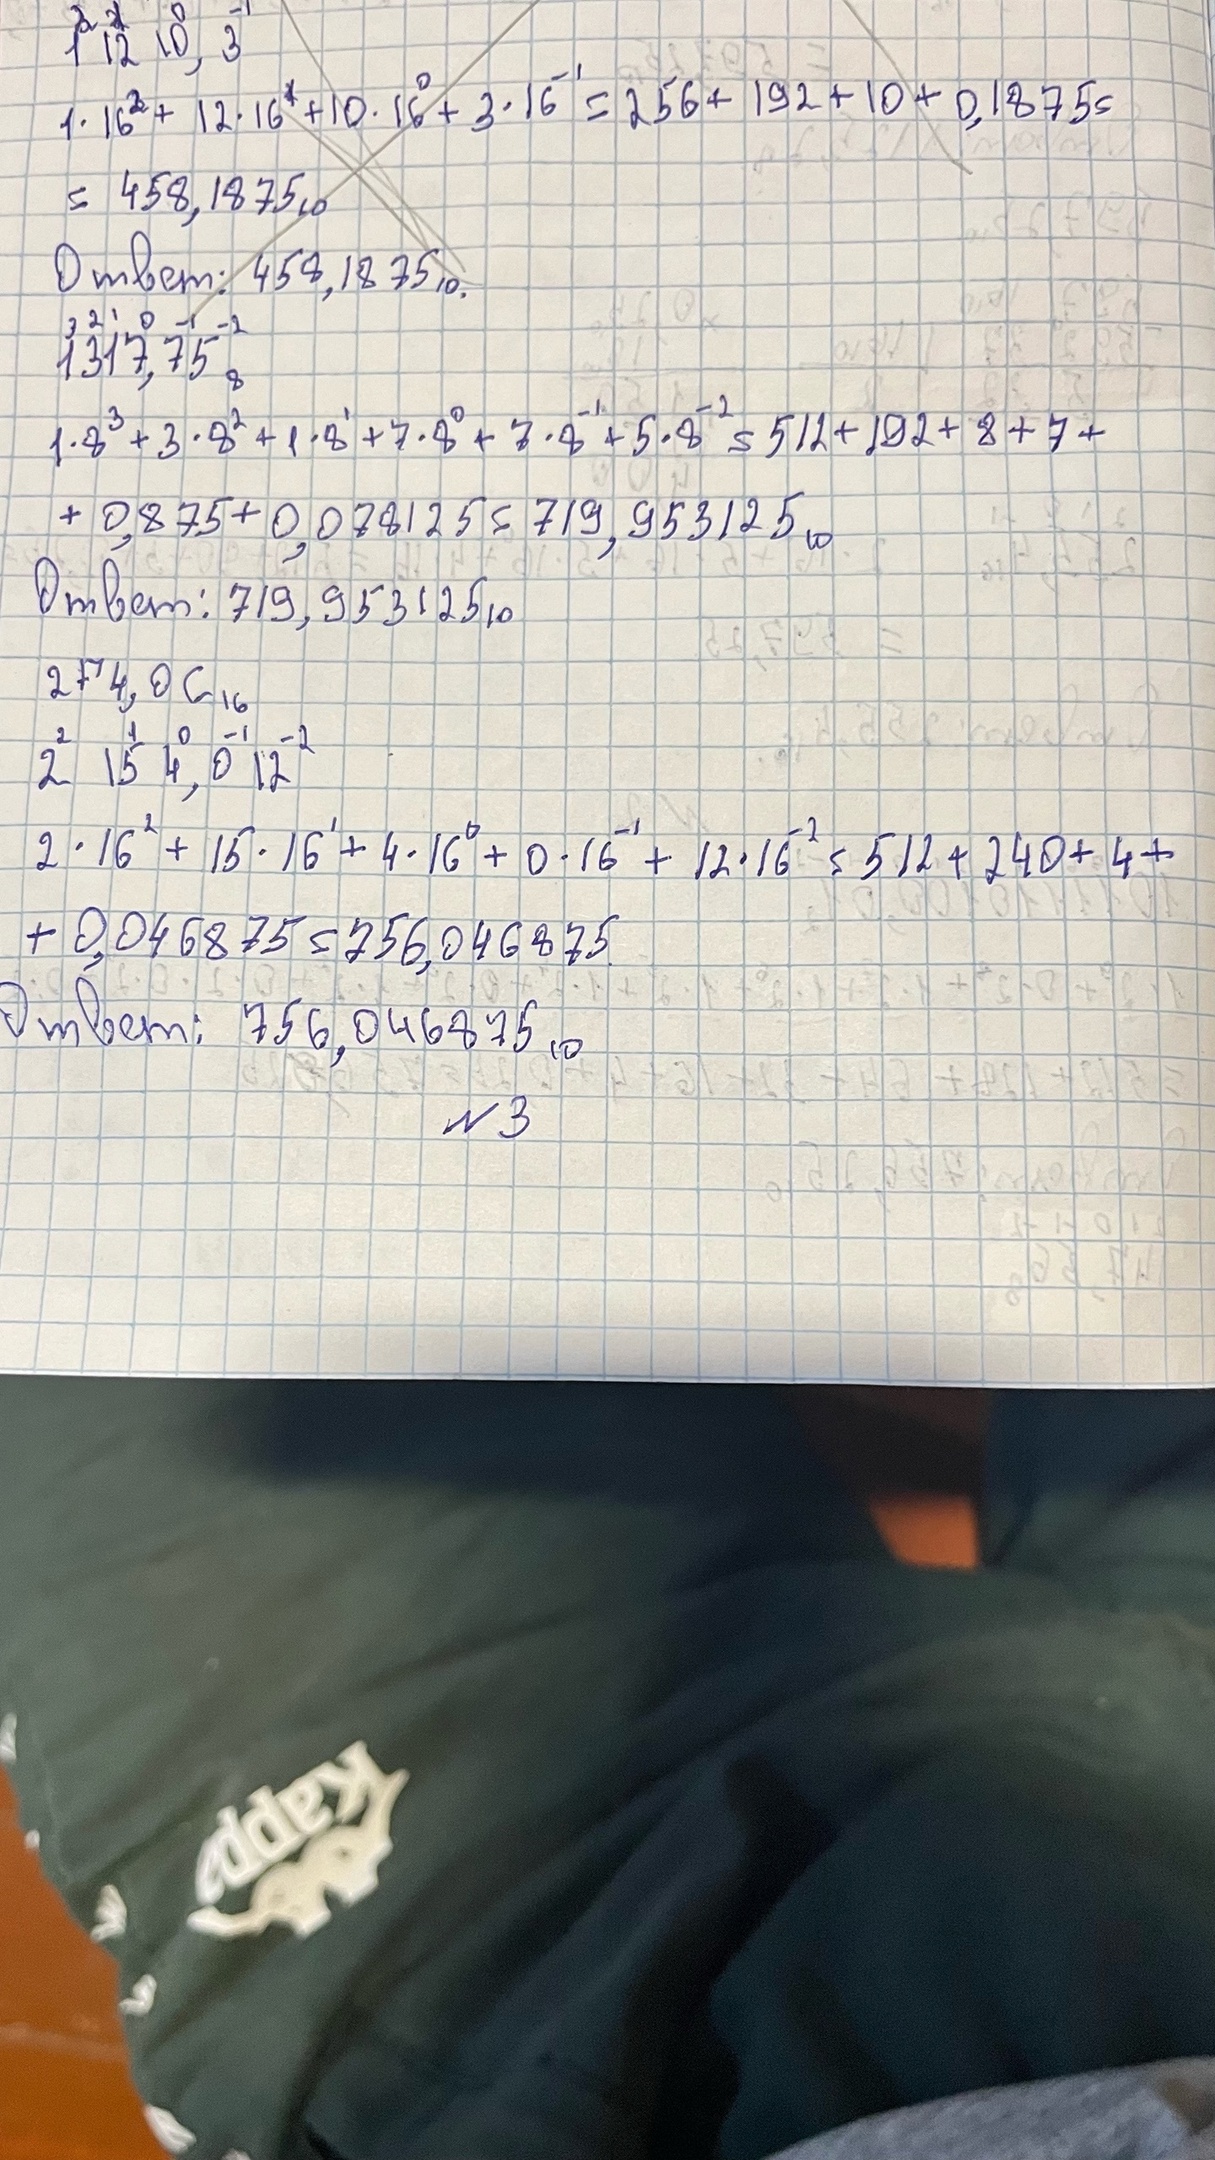 1² 12¹ 10⁰, 3⁻¹
1·16² + 12·16¹ + 10·16⁰ + 3·16⁻¹ = 256 + 192 + 10 + 0,1875 =
= 458,1875₁₀
Ответ: 458,1875₁₀.
3 2 1 0 -1 -2
1317,75₈
1·8³ + 3·8² + 1·8¹ + 7·8⁰ + 7·8⁻¹ + 5·8⁻² = 512 + 192 + 8 + 7 +
+ 0,875 + 0,078125 = 719,953125₁₀
Ответ: 719,953125₁₀
2F4,0C₁₆
2² 15¹ 4⁰, 0⁻¹ 12⁻²
2·16² + 15·16¹ + 4·16⁰ + 0·16⁻¹ + 12·16⁻² = 512 + 240 + 4 +
+ 0,046875 = 756,046875
Ответ: 756,046875₁₀
№3
Kappa